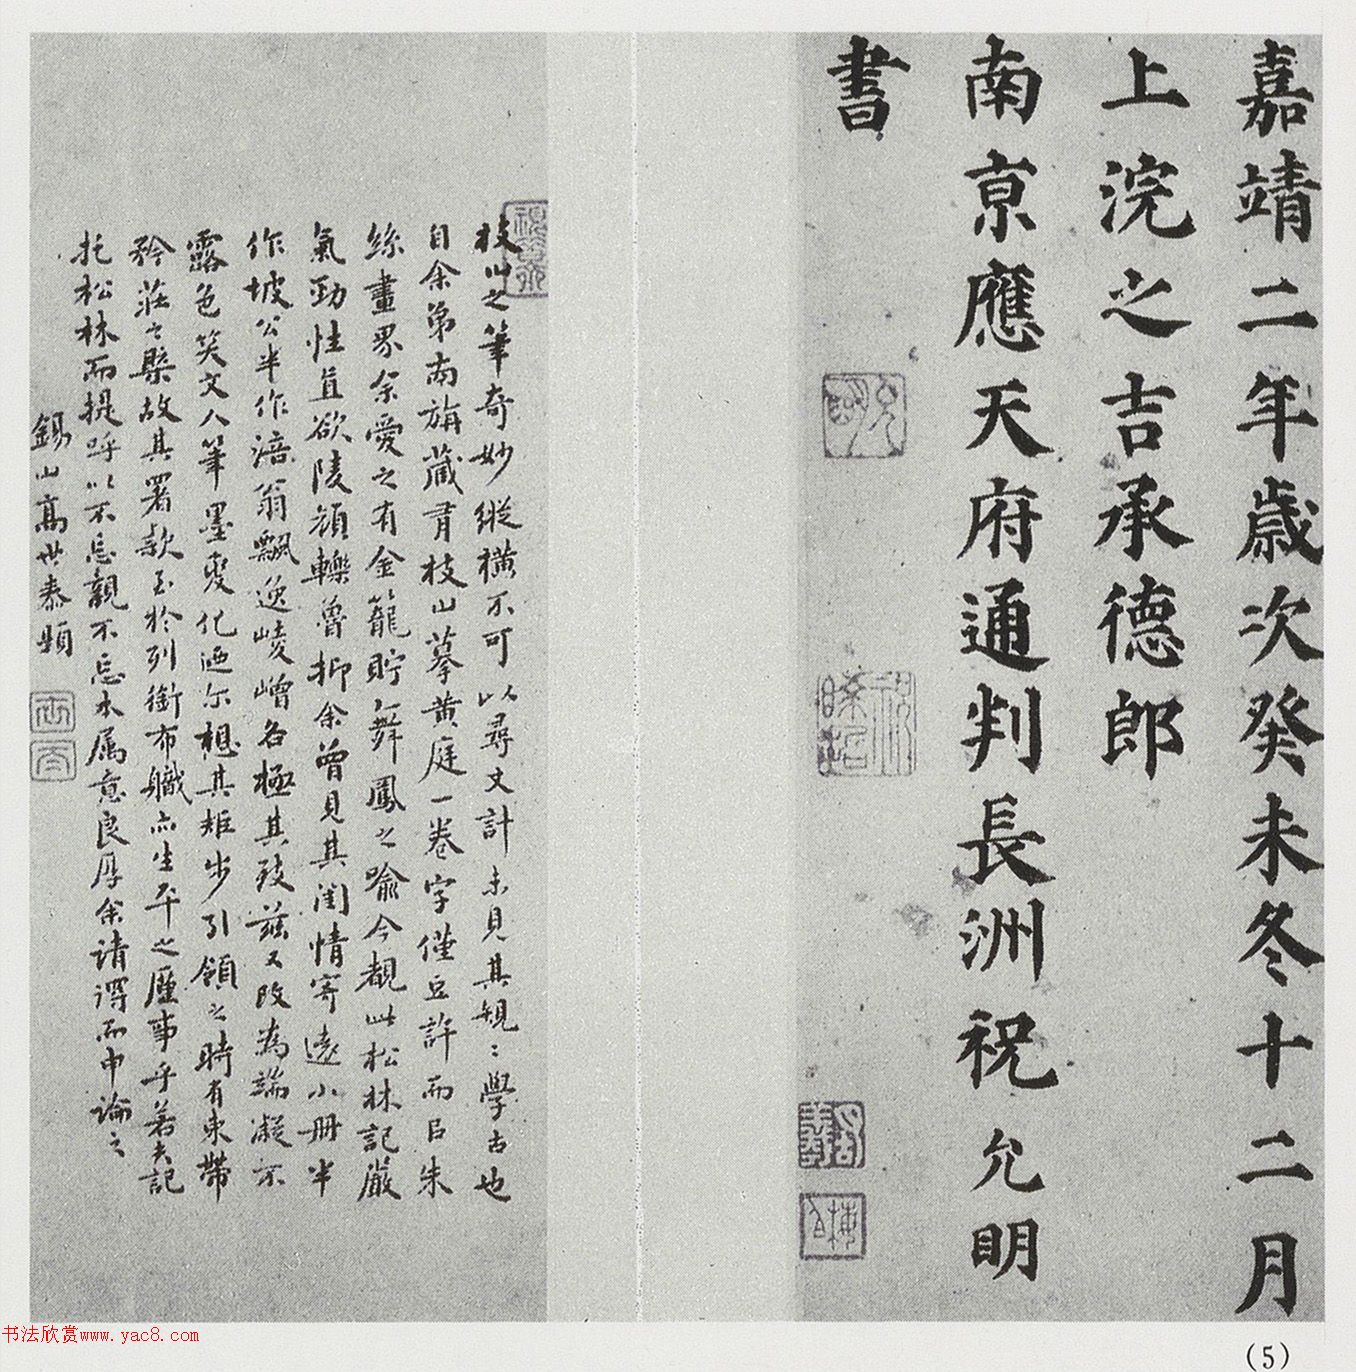 嘉靖二年歲次癸未冬十二月
上浣之吉承德郎
南京應天府通判長洲祝允明
書
枝山之筆奇妙縱橫不可以尋丈計未見其規〻學古也
自余弟南旃藏有枝山摹黃庭一卷字僅豆許而以朱
絲畫界余愛之有金籠貯舞鳳之喻今覩此松林記嚴
氣勁性直欲陵顏轢魯抑余曾見其閨情寄遠小冊半
作坡公半作涪翁飄逸崚嶒各極其致茲又改為端凝不
露色笑文人筆墨變化迺尔想其矩步引領之時有束帶
矜莊之槩故其署款至於列銜布職亦生平之歷事乎若夫記
托松林而提呼以不忘親不忘本属意良厚余請得而申論之
錫山高世泰題
书法欣赏www.yac8.com
(5)